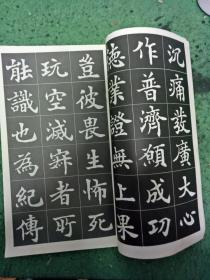 沉痛發廣大心
作普濟願成功
德業證無上果
豈彼畏生怖死
玩空滅寂者所
能識也為紀傳